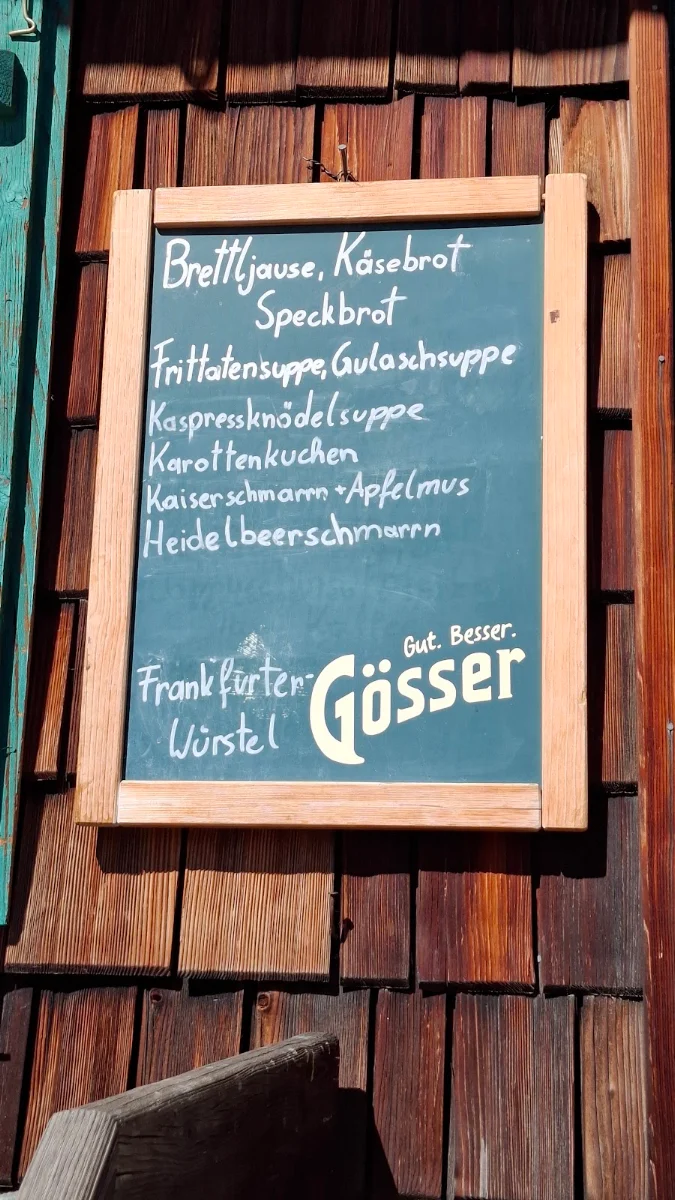 Brettljause, Käsebrot
Speckbrot
Frittatensuppe, Gulaschsuppe
Kaspressknödelsuppe
Karottenkuchen
Kaiserschmarrn + Apfelmus
Heidelbeerschmarrn
Gut. Besser.
Gösser
Frankfurter-
Würstel